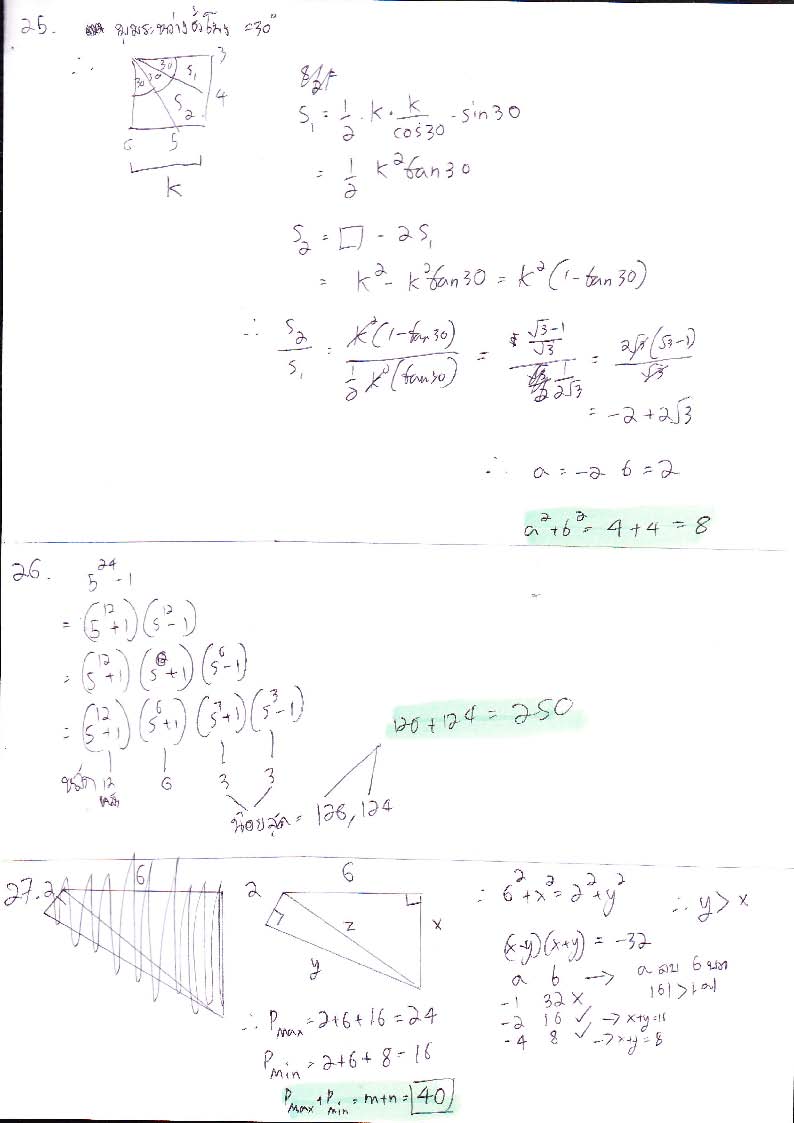 25. มุมระหว่างชั่วโมง = 30°
∴
30 30 30 S₁ S₂ 3 4 5 6
k
S₁ = 1/2 · k · k/cos30 · sin30
= 1/2 k² tan30
S₂ = □ - 2S₁
= k² - k² tan30 = k² (1 - tan30)
∴ S₂/S₁ = k²(1 - tan30) / (1/2 k² (tan30)) = ((√3-1)/√3) / (1/(2√3)) = 2√3(√3-1)/√3
= -2 + 2√3
∴ a = -2 b = 2
a² + b² = 4 + 4 = 8
26. 5²⁴ - 1
= (5¹² + 1) (5¹² - 1)
= (5¹² + 1) (5⁶ + 1) (5⁶ - 1)
= (5¹² + 1) (5⁶ + 1) (5³ + 1) (5³ - 1)
12 6 3 3
หลัก
น้อยสุด = 126, 124
126 + 124 = 250
27. 2 6
2 6 x y z
∴ 6² + x² = 2² + y² ∴ y > x
(x-y)(x+y) = -32
a b → a ลบ b บวก
|b| > |a|
-1 32 ×
-2 16 ✓ → x+y=16
-4 8 ✓ → x+y = 8
∴ Pmax = 2+6+16 = 24
Pmin = 2+6+8 = 16
Pmax + Pmin = m+n = 40